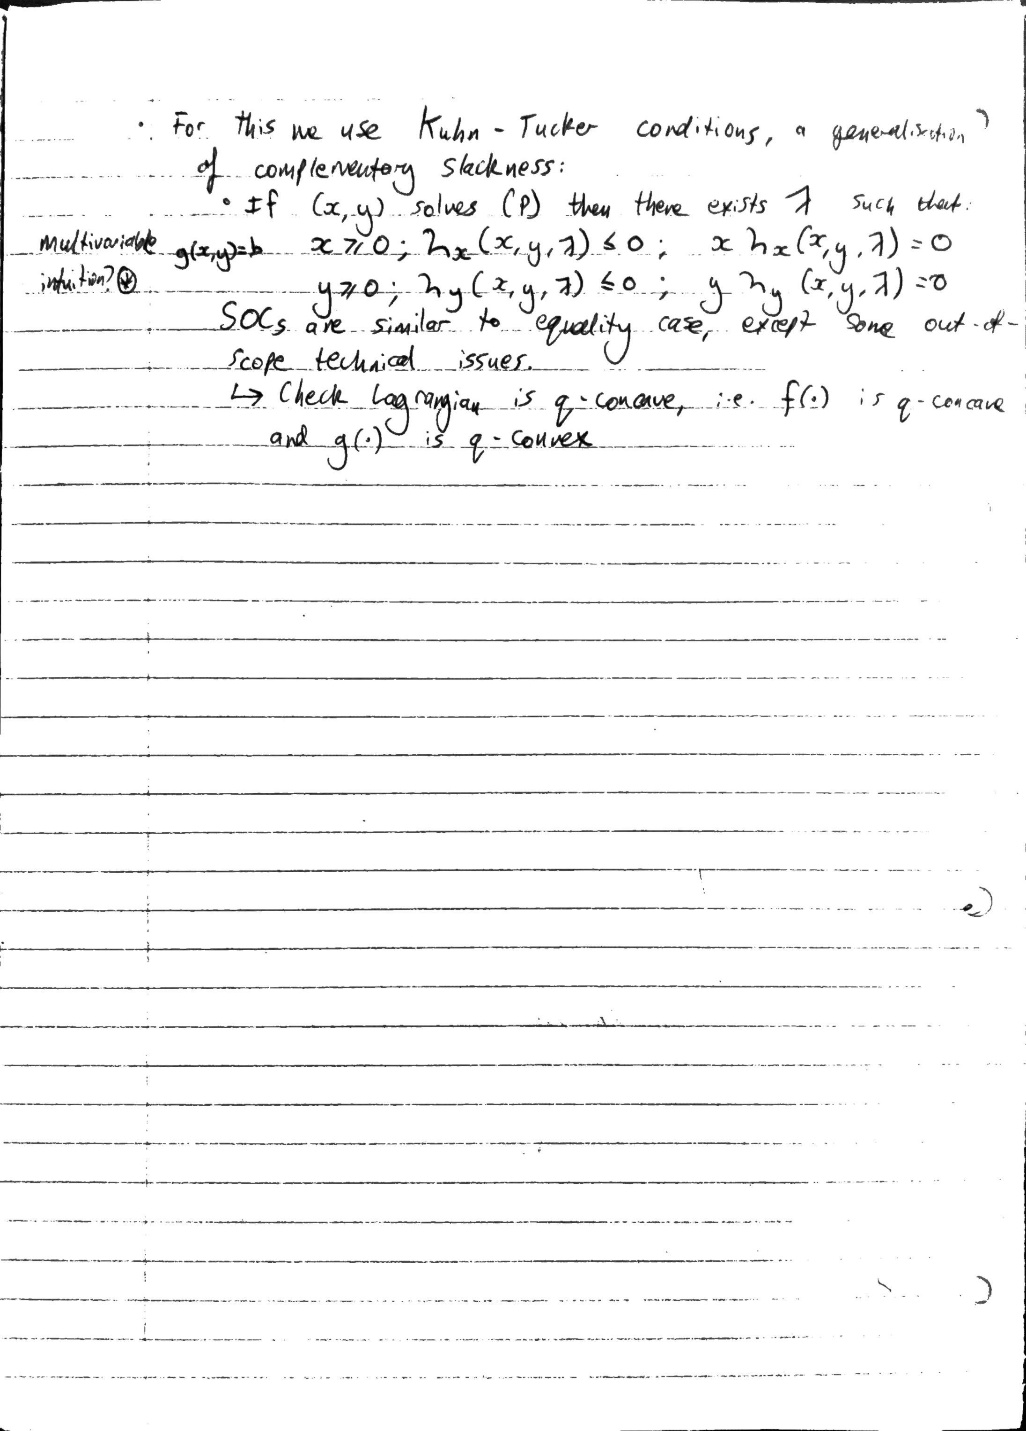 • For this we use Kuhn-Tucker conditions, a generalisation
of complementary slackness:
• If (x,y) solves (P) then there exists λ such that:
multivariable g(x,y)=b x ⩾ 0; h_x(x,y,λ) ≤ 0; x h_x(x,y,λ) = 0
intuition? y ⩾ 0; h_y(x,y,λ) ≤ 0; y h_y(x,y,λ) = 0
SOCs are similar to equality case, except some out-of-
scope technical issues.
↳ Check Lagrangian is q-concave, i.e. f(·) is q-concave
and g(·) is q-convex